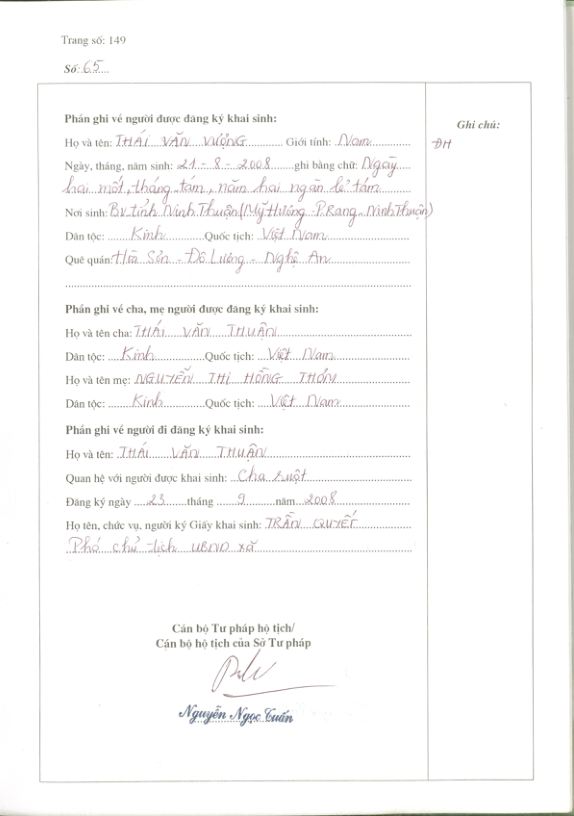 Trang số: 149
Số: 65
Phần ghi về người được đăng ký khai sinh:
Ghi chú:
Họ và tên: THÁI VĂN VƯỢNG Giới tính: Nam
ĐH
Ngày, tháng, năm sinh: 21 - 8 - 2008 ghi bằng chữ: Ngày
hai mốt, tháng tám, năm hai ngàn lẻ tám
Nơi sinh: Bv tỉnh Ninh Thuận (Mỹ Hương - P.Rang - Ninh Thuận)
Dân tộc: Kinh Quốc tịch: Việt Nam
Quê quán: Sơn - Đô Lương - Nghệ An
Phần ghi về cha, mẹ người được đăng ký khai sinh:
Họ và tên cha: THÁI VĂN THUẬN
Dân tộc: Kinh Quốc tịch: Việt Nam
Họ và tên mẹ: NGUYỄN THỊ HỒNG THƠM
Dân tộc: Kinh Quốc tịch: Việt Nam
Phần ghi về người đi đăng ký khai sinh:
Họ và tên: THÁI VĂN THUẬN
Quan hệ với người được khai sinh: Cha ruột
Đăng ký ngày 23 tháng 9 năm 2008
Họ tên, chức vụ, người ký Giấy khai sinh: TRẦN QUYẾT
Phó chủ tịch UBND xã
Cán bộ Tư pháp hộ tịch/
Cán bộ hộ tịch của Sở Tư pháp
Nguyễn Ngọc Tuấn